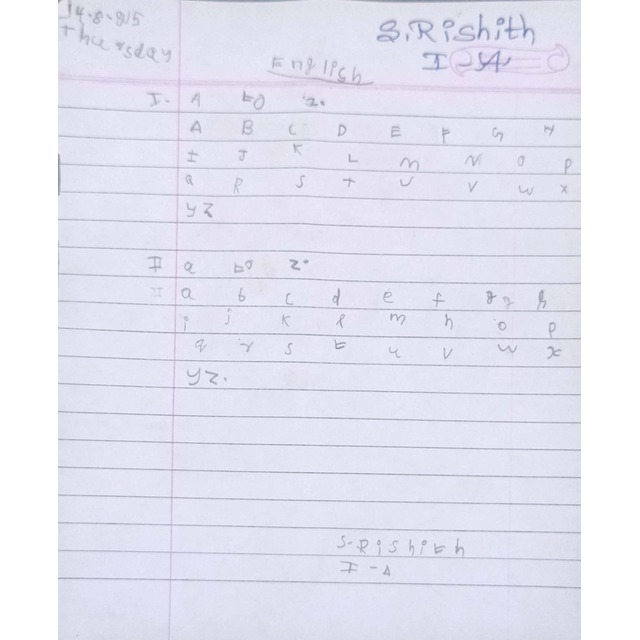 14.8.25
Thursday
S.Rishith
I - A
English
I. A to z.
A B C D E F G H
I J K L M N O P
Q R S T U V W X
Y Z
II a to z.
II a b c d e f g h
i j k l m n o p
q r s t u v w x
y z.
S-Rishith
I - A